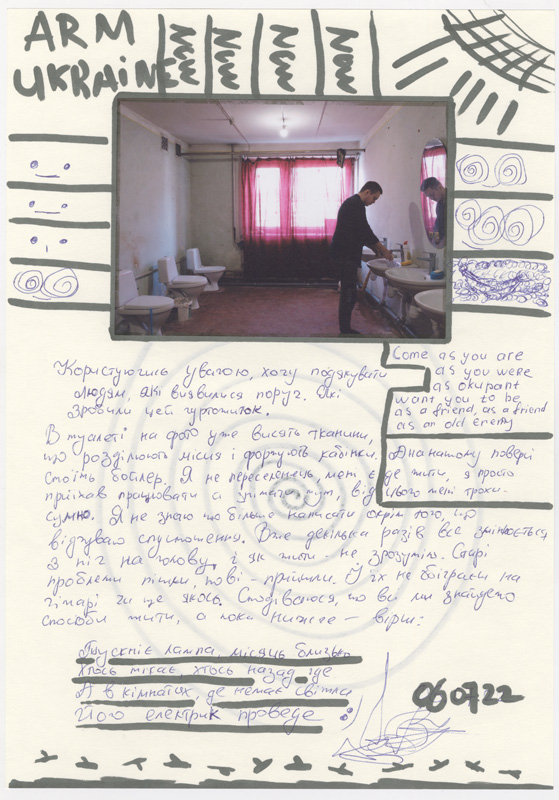 ARM
UKRAINE
New New New New
Come as you are
as you were
as okupant
want you to be
as a friend, as a friend
as an old enemy
Користуючись увагою, хочу подякувати
людям, які виявилися поруч. Які
зробили цей гуртожиток.
В туалеті на фото уже висять тканини,
що розділюють місця і формують кабінки.
А на нашому поверсі
Стоїть бойлер. Я не переселенець, мені є де жити, я просто
приїхав працювати а знімати, від цього мені трохи
сумно. Я не знаю що більше написати окрім того, що
відчуваю спустошення. Вже декілька разів все змінюється
з ніг на голову, і як жити - не зрозуміло. Старі
проблеми пішли, нові - прийшли. Й їх не обіграєш на
гітарі чи ще якось. Сподіваюся, що всі ми знайдемо
способи жити, а поки нижче — вірш:
Тускніє лампа, місяць близько
Хтось тікає, хтось назад іде
А в кімнатах, де немає світла
Його електрик проведе :)
060722